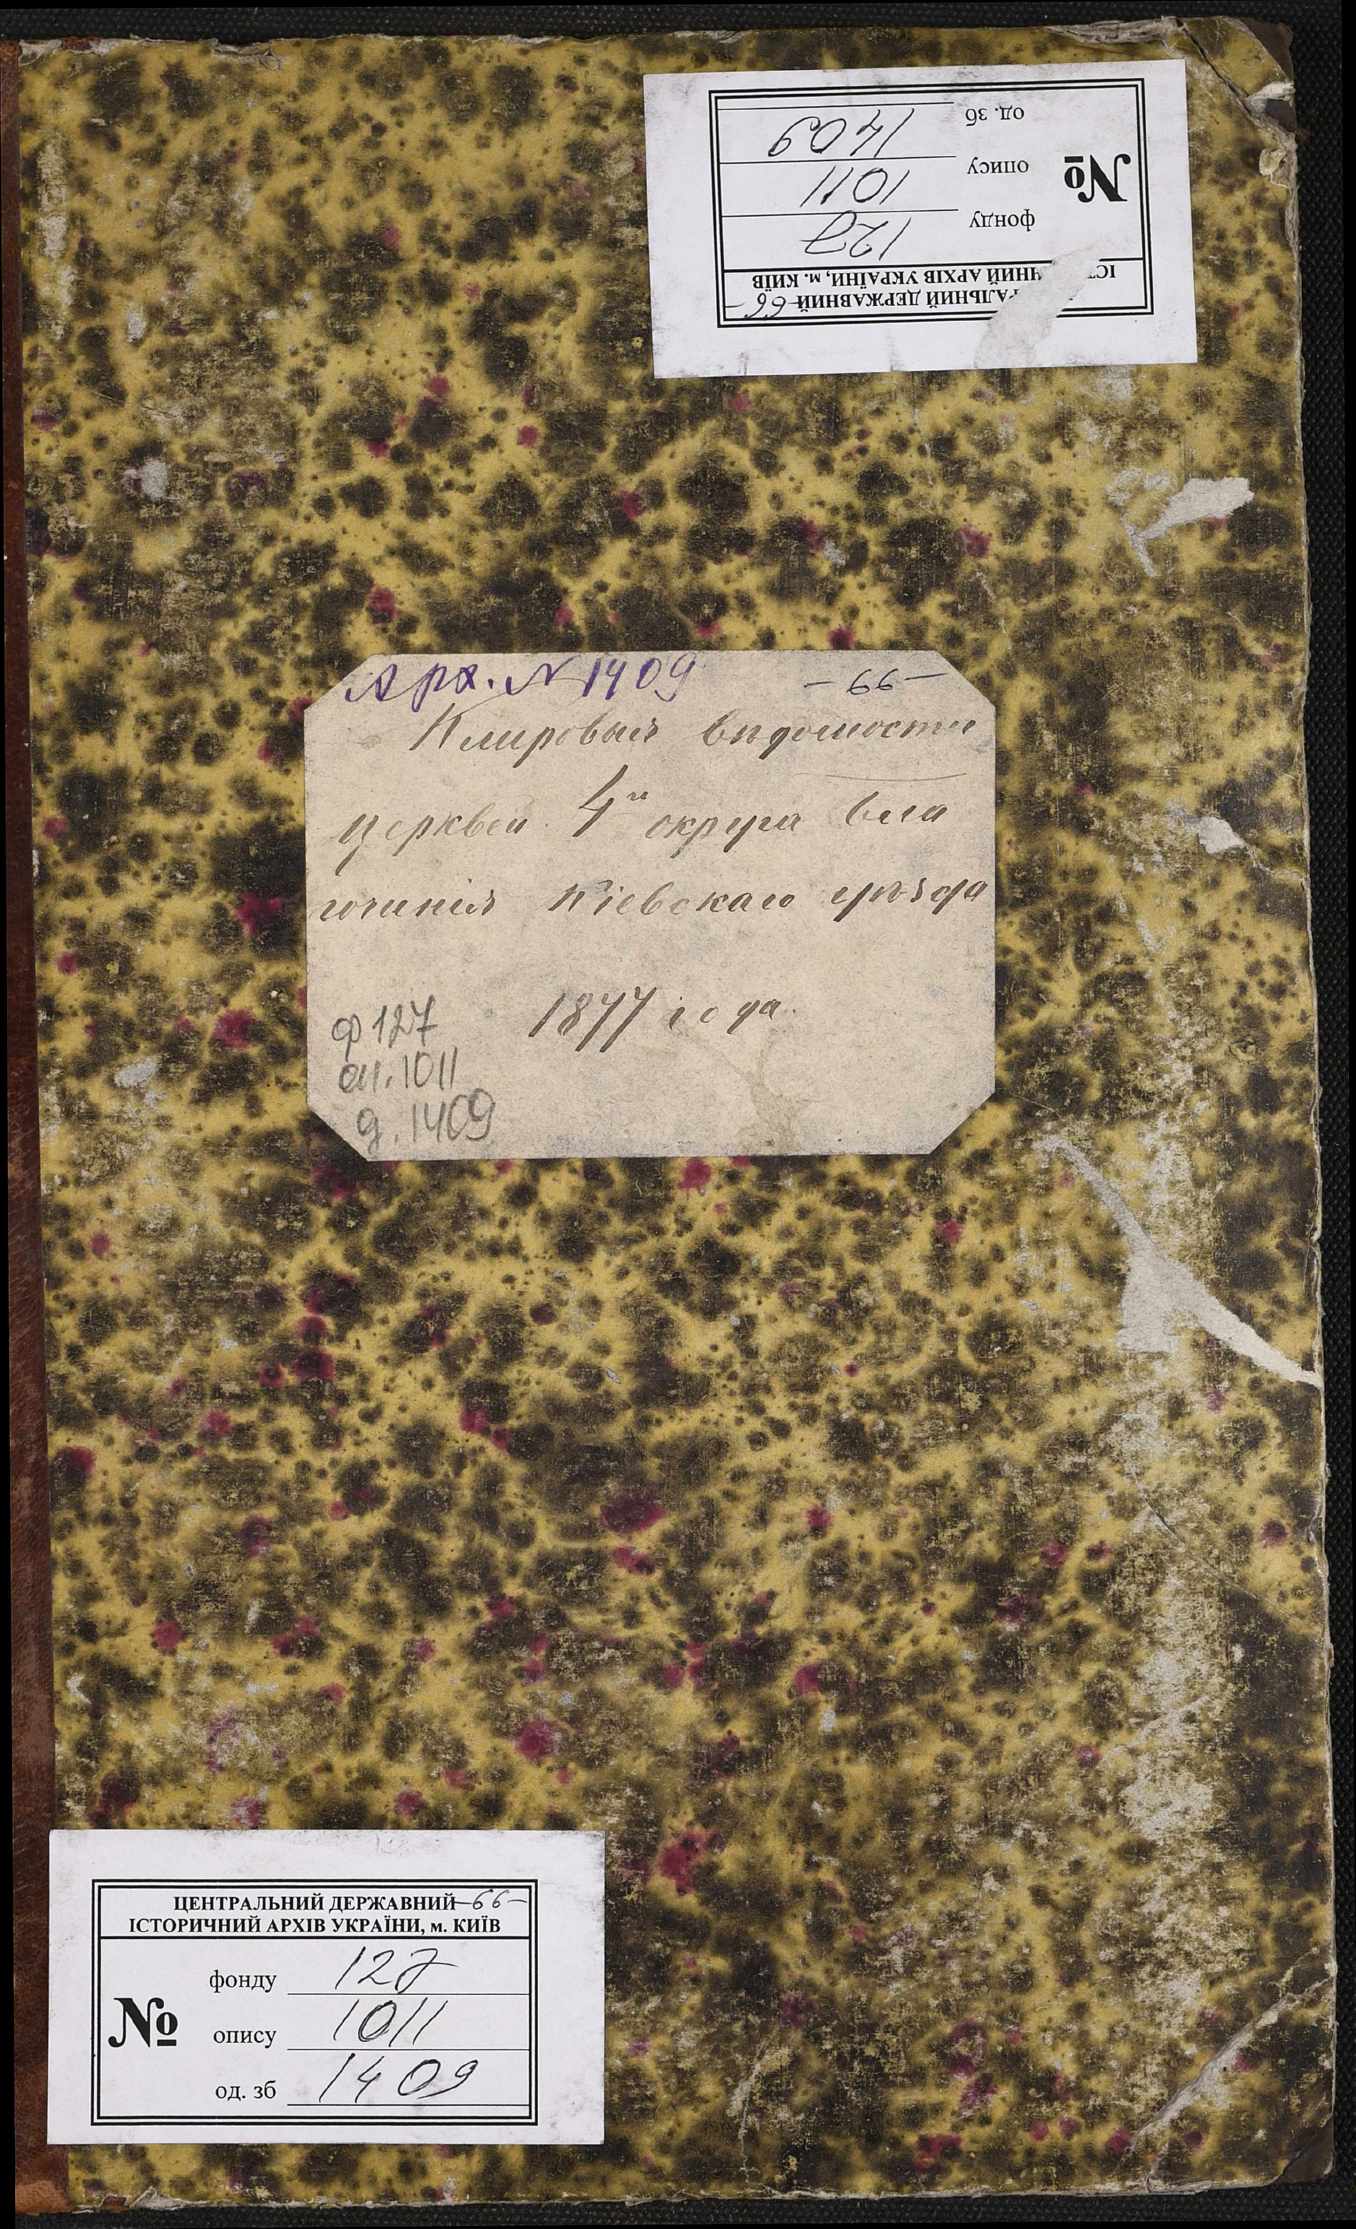 од. зб 1409
опису 1011
№
фонду 127
ІСТ НИЙ АРХІВ УКРАЇНИ, м. КИЇВ
РАЛЬНИЙ ДЕРЖАВНИЙ -66-
Арх. N 1409 - 66 -
Клировыя вѣдомости
церквей 4го округа бла
гочинія Кіевскаго уѣзда
1877 года.
ф 127
оп. 1011
д. 1409
ЦЕНТРАЛЬНИЙ ДЕРЖАВНИЙ -66-
ІСТОРИЧНИЙ АРХІВ УКРАЇНИ, м. КИЇВ
фонду 127
№
опису 1011
од. зб 1409